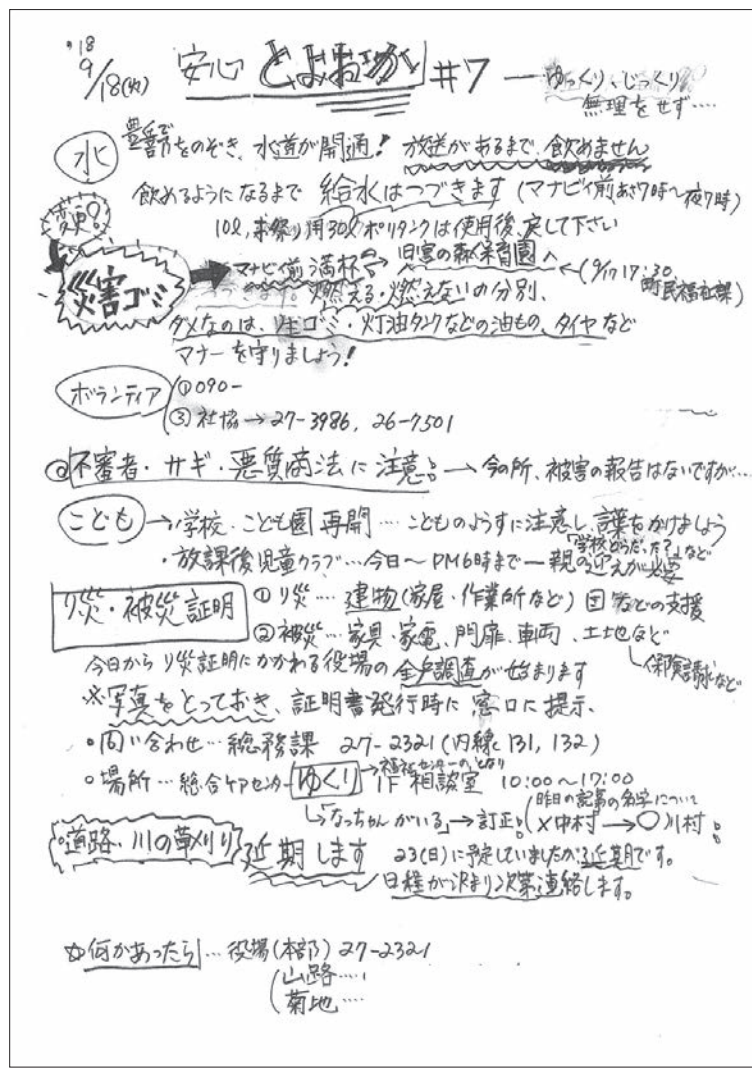 '18 9/18(火) 安心 とよおか #7 ― ゆっくり、じっくり
無理をせず‥‥
水 をのぞき、水道が開通! 放送があるまで、飲めません
飲めるようになるまで 給水はつづきます (マナビイ前あさ7時〜夜7時)
10ℓ, 用30ℓポリタンクは使用後、戻して下さい
変更?
災害ゴミ → マナビイ前 満杯 → 旧宮の森保育園へ
←(9/17 17:30 町民福祉課)
燃える・燃えないの分別、
ダメなのは、生ゴミ・灯油タンクなどの油もの、タイヤなど
マナーを守りましょう!
ボランティア ①090-
③社協→27-3986, 26-7501
◎不審者・サギ・悪質商法に注意!! → 今の所、被害の報告はないですが‥‥
こども → 学校・こども園 再開‥‥こどものようすに注意し、言葉をかけましょう
「学校どうだった?」など
・放課後児童クラブ‥‥今日〜PM6時まで ― 親の迎えが必要
り災・被災証明 ①り災‥‥建物(家屋・作業所など) などの支援
②被災‥‥家具・家電、門扉、車両、土地など
保険請求など
今日から り災証明にかかわる役場の 全戸調査が始まります
※写真をとっておき、証明書発行時に 窓口に提示、
・問い合わせ‥‥総務課 27-2321(内線 131, 132)
→福祉センターのとなり
・場所‥‥総合ケアセンター ゆくり 1F 相談室 10:00〜17:00
↳「なっちゃんがいる」→訂正!! (昨日の記事の名字について
×中村→○川村)
・道路、川の草刈り 延期します 23(日)に予定していましたが、延期です。
日程が決まり次第連絡します。
☆何かあったら‥‥役場(本部) 27-2321
(山路‥‥
菊地‥‥